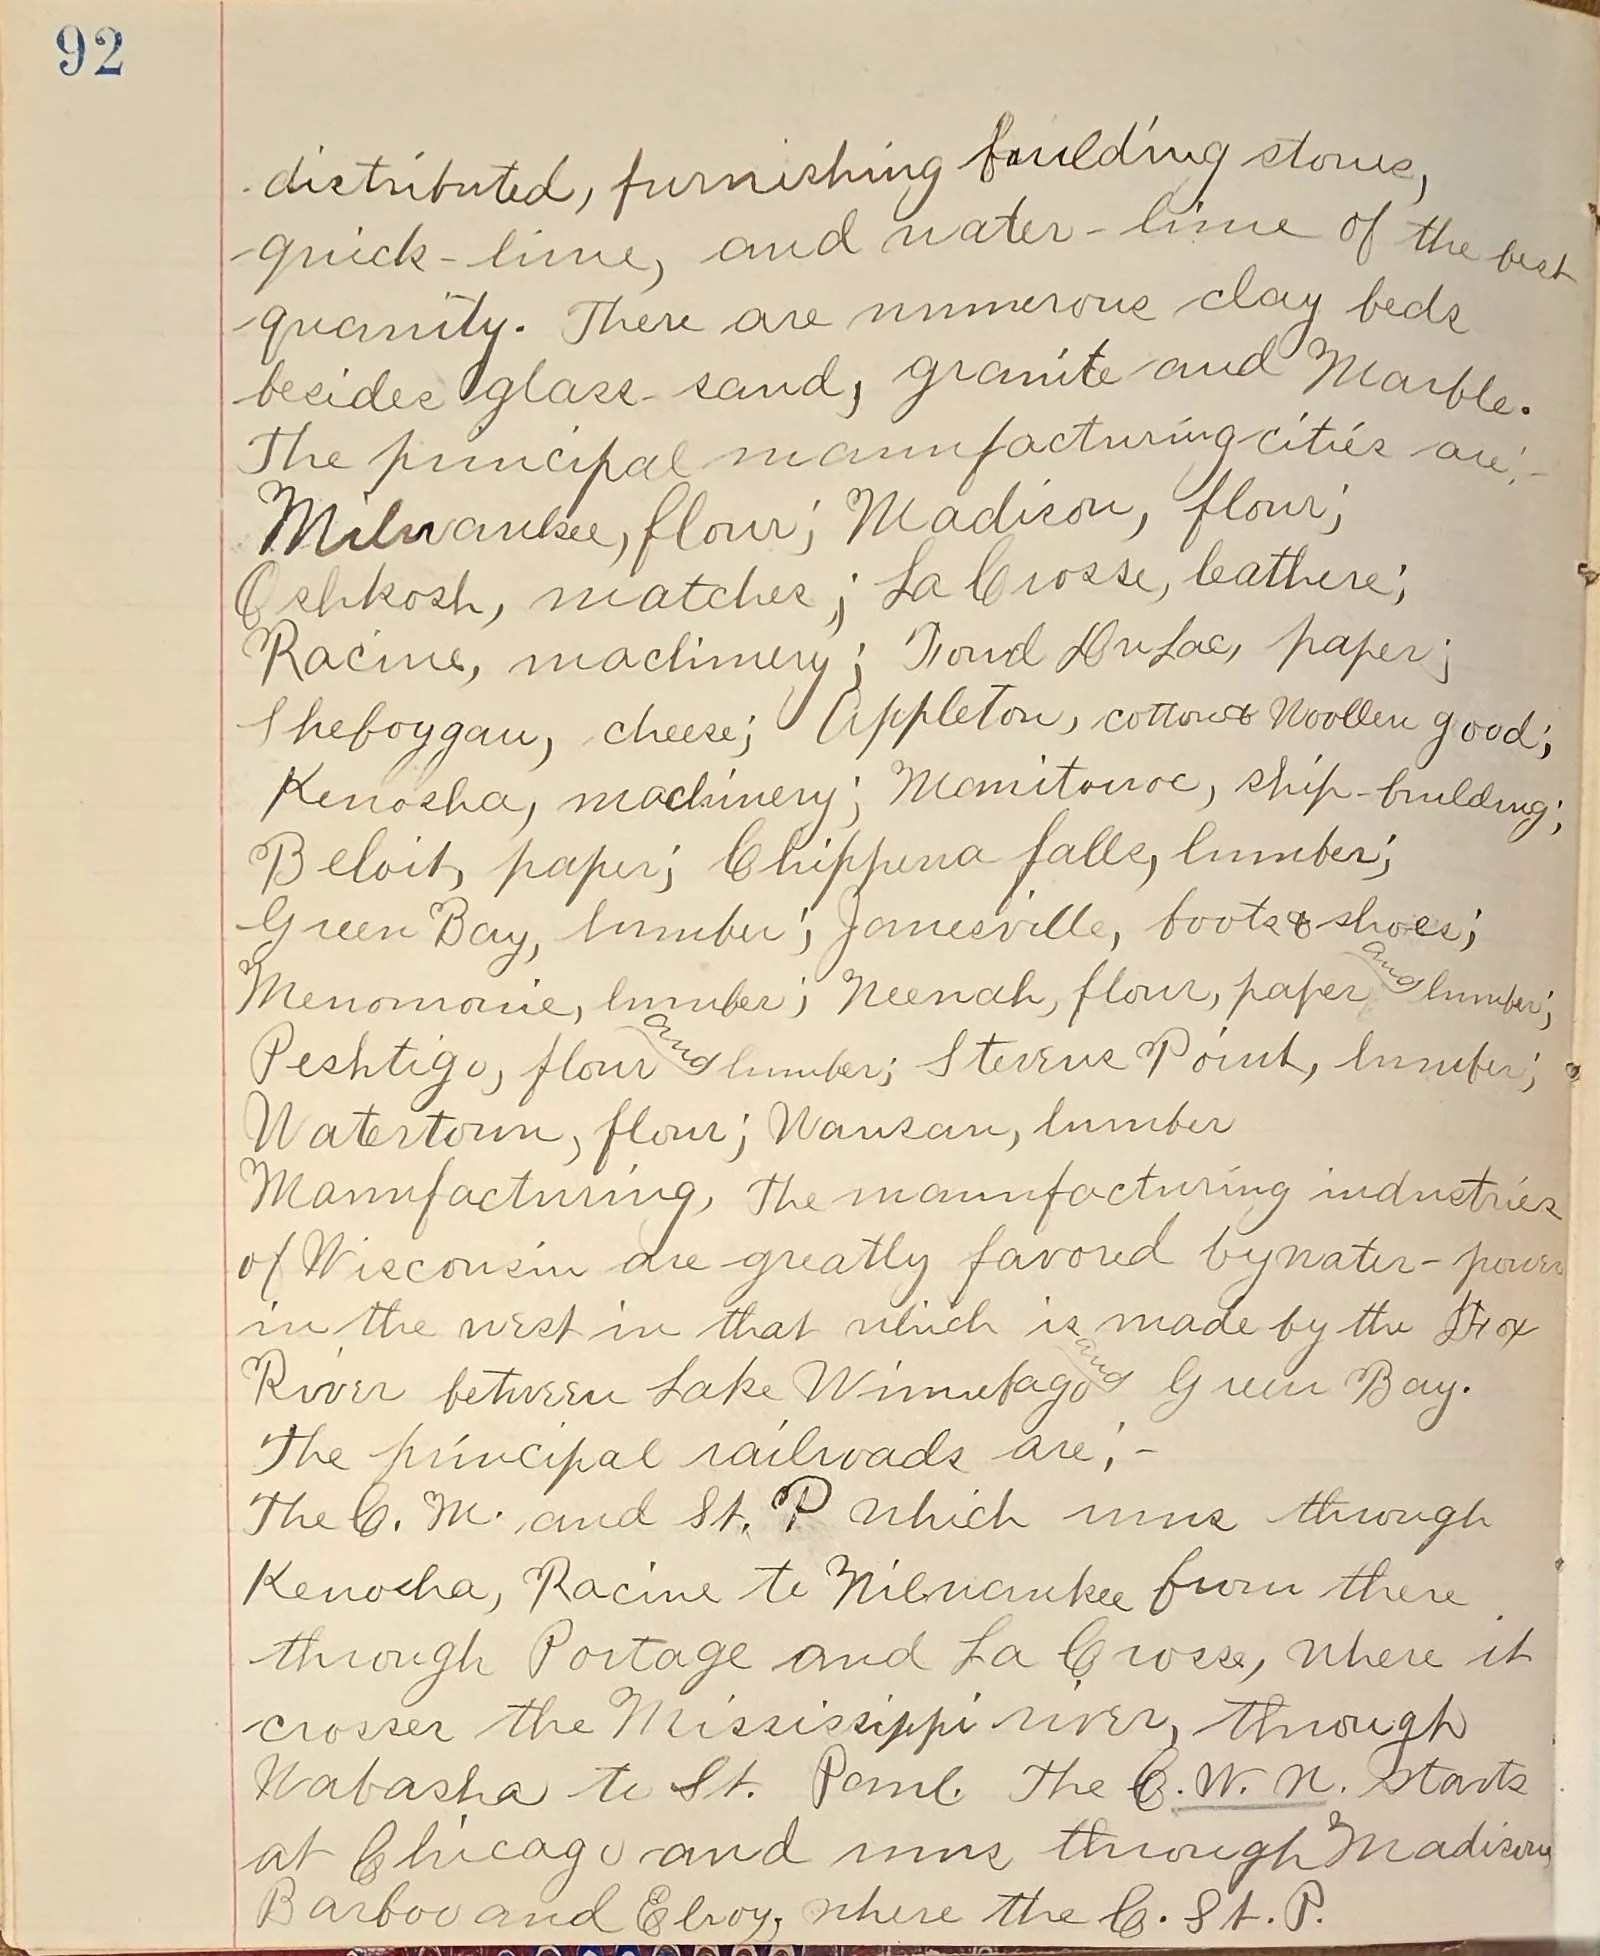 92
distributed, furnishing building stones,
quick-lime, and water-lime of the best
quanity. There are numerous clay beds
besides glass-sand, granite and Marble.
The principal manufacturing cities are:-
Milwaukee, flour; Madison, flour;
Oshkosh, matches; La Crosse, leathere;
Racine, machinery; Fond Du Lac, paper;
Sheboygan, cheese; Appleton, cotton & Woollen good;
Kenosha, machinery; Manitowoc, ship-building;
Beloit, paper; Chippewa falls, lumber;
Green Bay, lumber; Janesville, boots & shoes;
Menomonie, lumber; Neenah, flour, paper and lumber;
Peshtigo, flour and lumber; Stevens Point, lumber;
Watertown, flour; Wausau, lumber
Manufacturing, The manufacturing industries
of Wisconsin are greatly favored by water-power
in the west in that which is made by the Fox
River between Lake Winnebago and Green Bay.
The principal railroads are;-
The C. M. and St. P which runs through
Kenosha, Racine to Milwaukee from there
through Portage and La Crosse, where it
crosses the Mississippi river, through
Wabasha to St. Paul. The C. W. N. starts
at Chicago and runs through Madison,
Barboo and Elroy, where the C. St. P.